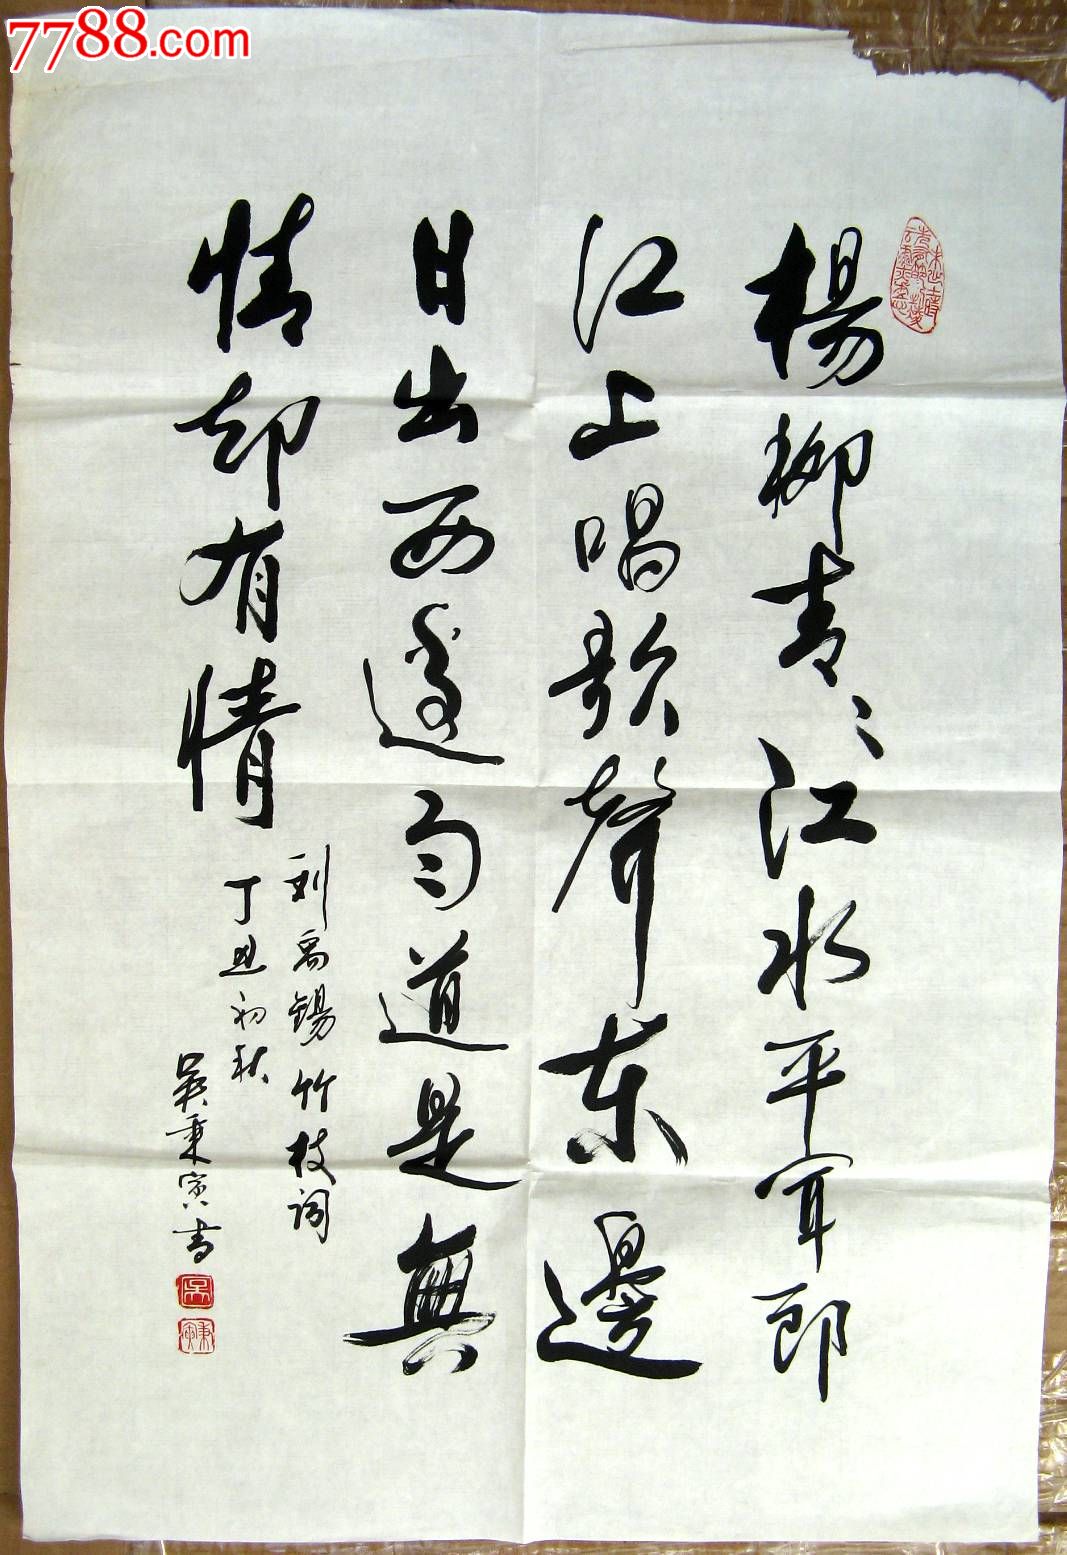 7788.com
楊柳青々江水平聞郎
江上唱歌聲東邊
日出西邊雨道是無
情却有情
劉禹錫竹枝詞
丁丑初秋
吳秉寅書